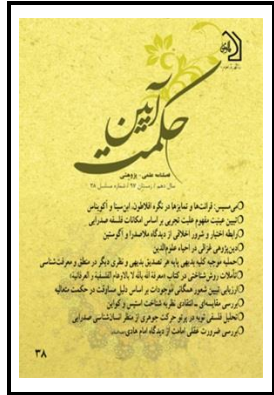 آیین
حکمت
فصلنامه علمی - پژوهشی
سال دهم / زمستان ۹۷ / شماره مسلسل ۳۸
می‌مسیس: قرائت‌ها و تمایزها در نگره افلاطون، ابن‌سینا و آکویناس
تبیین عینیت مفهوم علیت تجربی بر اساس امکانات فلسفه صدرایی
رابطه اختیار و شرور اخلاقی از دیدگاه ملاصدرا و آگوستین
دین‌پژوهی غزالی در احیاء علوم‌الدین
حملیه موجبه کلیه بدیهی پایه هر تصدیق بدیهی و نظری دیگر در منطق و معرفت‌شناسی
تأملات روش‌شناختی در کتاب «معرفة الله بالله لا بالاوهام الفلسفیة و العرفانیة»
ارزیابی تبیین شعور همگانی موجودات بر اساس دلیل مساوقت در حکمت متعالیه
بررسی مقایسه‌ای ـ انتقادی نظریه شناخت استیس و کواین
تحلیل فلسفی توبه در پرتو حرکت جوهری از منظر انسان‌شناسی صدرایی
بررسی ضرورت عقلی امامت از دیدگاه امام هادی
۳۸